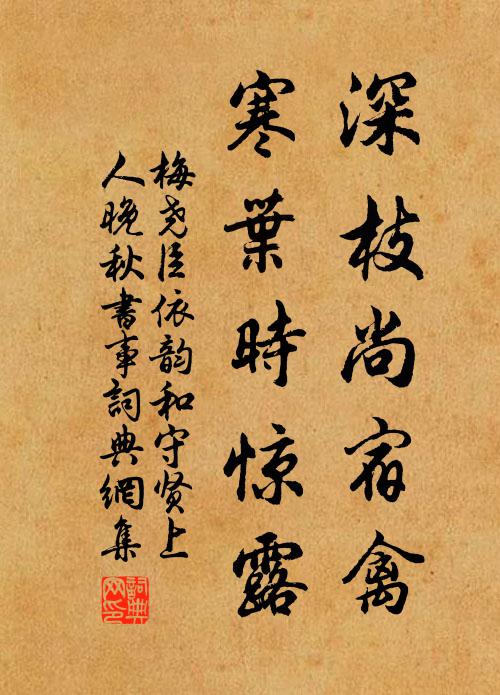 深枝尚宿禽
寒葉時惊露
梅尧臣依韵和守贤上
人晚秋書事詞典網集
詞典
网印